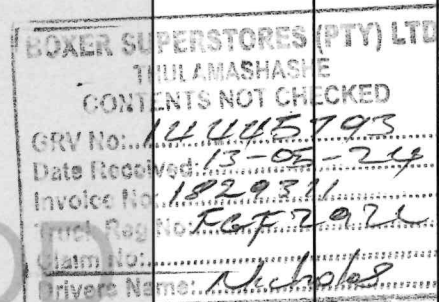 BOXER SUPERSTORES (PTY) LTD
THULAMASHASHE
CONTENTS NOT CHECKED
GRV No: 14445793
Date Received: 13-05-24
Invoice No: 1829311
Truck Reg No:
Claim No:
Drivers Name: Nicholas